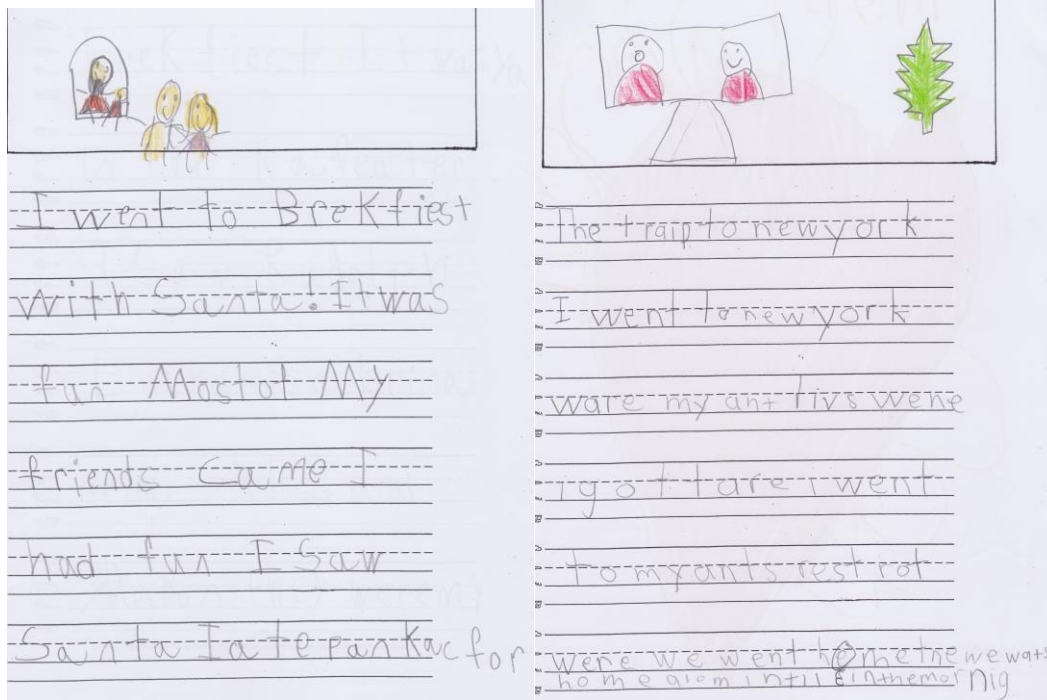 I went to Brekfiest
with Santa! It was
fun Most of My
friends came I
had fun I Saw
Santa I ate pankac for
The traip to new york
I went to new york
ware my ant livs wene
i got tare i went
to my ants rest rot
were we went home the we wats
home alom intil 8 in the mornig